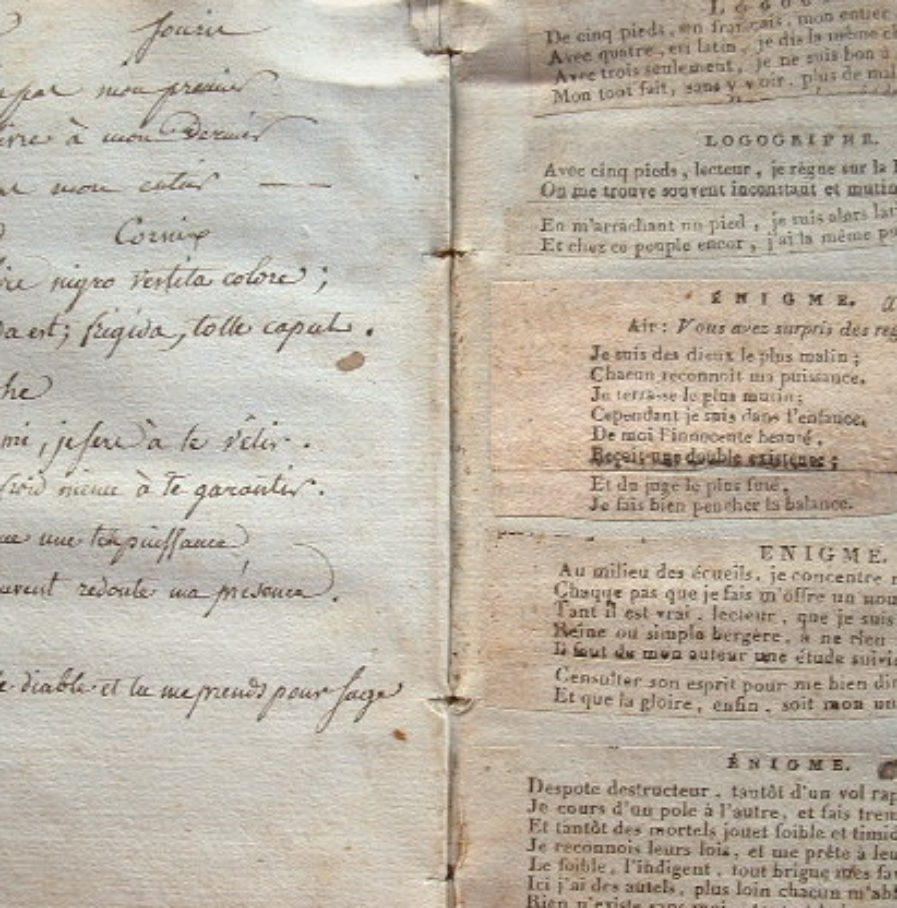 sourir
par mon premier
à mon Dernier
mon entier
Cornix
nigro vestita colore ;
est ; frigida, tolle caput.
he
mi, je sers à te vêtir.
froid même à te garantir.
une
souvent redoute ma présence.
diable et tu me prends pour sage
LOGOG
De cinq pieds, en français, mon entier
Avec quatre, en latin, je dis la même ch
Avec trois seulement, je ne suis bon à
Mon tout fait, sans y voir, plus de mal
LOGOGRIPHE.
Avec cinq pieds, lecteur, je règne sur la
On me trouve souvent inconstant et mutin
En m'arrachant un pied, je suis alors lati
Et chez ce peuple encor, j'ai la même pu
ÉNIGME.
Air : Vous avez surpris des reg
Je suis des dieux le plus malin ;
Chacun reconnoît ma puissance.
Je terrasse le plus mutin ;
Cependant je suis dans l'enfance.
De moi l'innocente beauté,
Reçoit une double existence ;
Et du juge le plus futé,
Je fais bien pencher la balance.
ENIGME.
Au milieu des écueils, je concentre
Chaque pas que je fais m'offre un nou
Tant il est vrai, lecteur, que je suis
Reine ou simple bergère, à ne rien
Il faut de mon auteur une étude suivie
Consulter son esprit pour me bien
Et que la gloire, enfin, soit mon un
ÉNIGME.
Despote destructeur, tantôt d'un vol rap
Je cours d'un pole à l'autre, et fais trem
Et tantôt des mortels jouet foible et timid
Je reconnois leurs lois, et me prête à leu
Le foible, l'indigent, tout brigue mes fav
Ici j'ai des autels, plus loin chacun m'abh
Rien n'existe sans moi